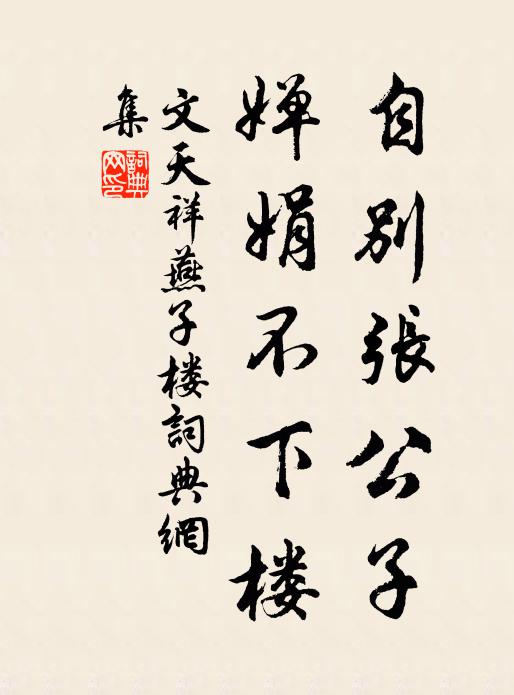 自别張公子
婵娟不下楼
文天祥燕子楼詞典網
集
詞典网印